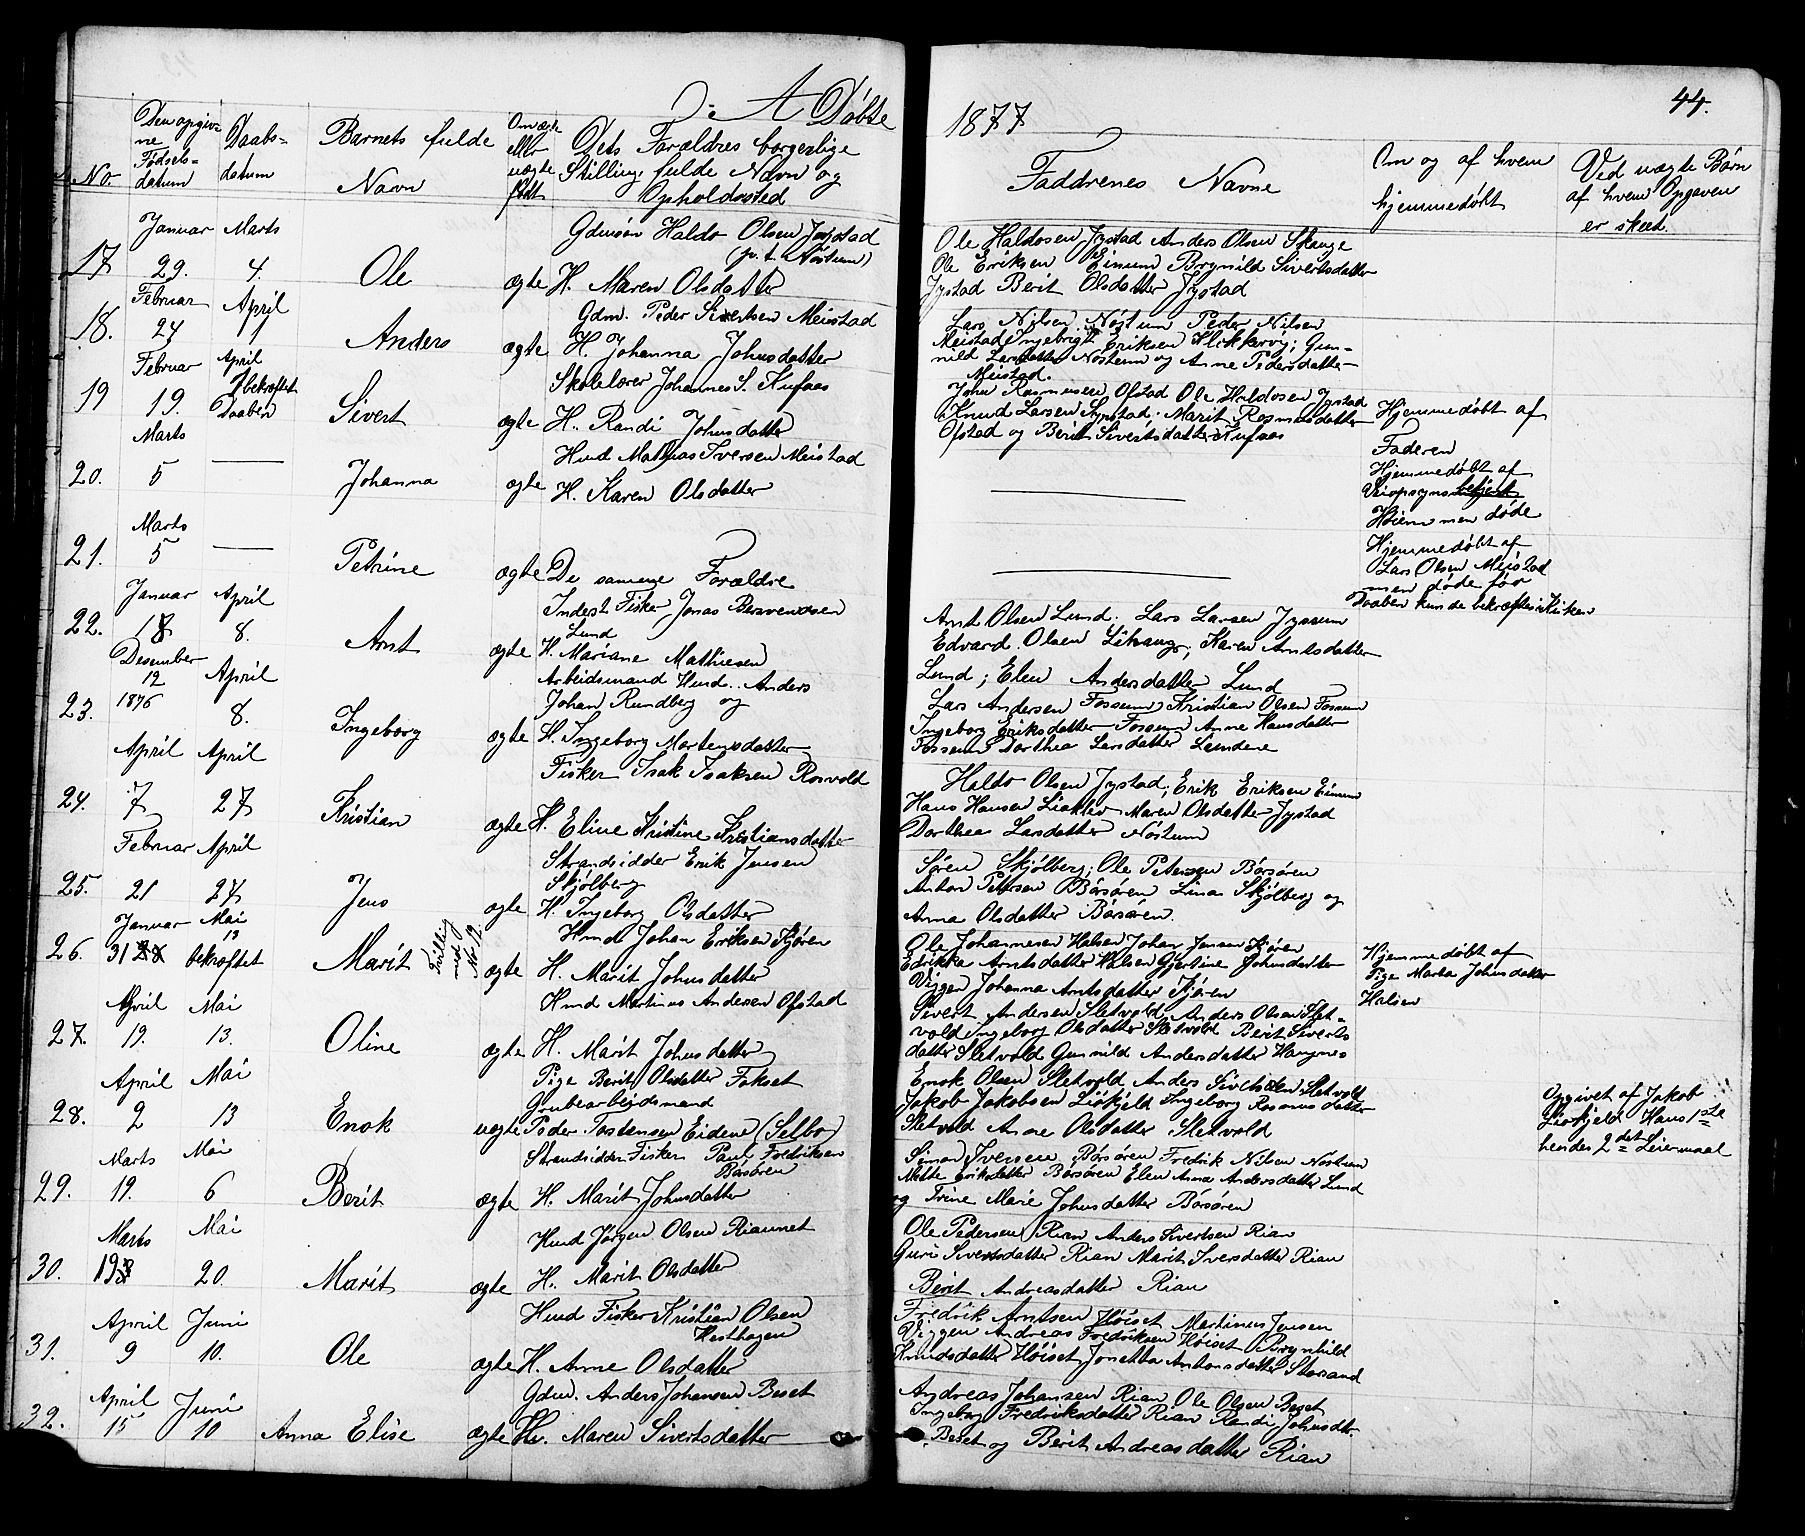 A Døbte
1877
44.
No.
Den opgivne Fødselsdatum
Daabsdatum
Barnets fulde Navn
Om ægte eller uægte født
Dets Forældres borgerlige Stilling, fulde Navn og Opholdssted
Faddrenes Navne
Om og af hvem hjemmedøbt
Ved uægte Børn af hvem Opgaven er skeed.
17 Januar 29. Marts 4. Ole ægte
Gdmsøn Haldo Olsen Jystad
(p. t. Nøstum)
H. Maren Olsdatter
Ole Haldosen Jystad Anders Olsen Skauge
Ole Eriksen Eimum Brynild Sivertsdatter
Jystad Berit Olsdatter Jystad
18. Februar 24 April 1 Anders ægte
Gdm. Peder Sivertsen Meistad
H. Johanna Johnsdatter
Lars Nilsen Nøstum Peder Nilsen
Meistad Ingebrigt Eriksen Klikkervg; Gun-
nild Larsdatter Nøsteum og Anne Pedersdatter
Meistad.
19 Februar 19. April bekræftet Daaben Sivert ægte
Skolelærer Johannes S. Kufaas
H. Randi Johnsdatter
John Rasmussen Ofstad Ole Haldosen Jystad
Knud Larsen Jystad. Marit Rasmusdatter
Ofstad og Berit Sivertsdatter Kufaas
Hjemmedøbt af
Faderen
20. Marts 5 — Johanna ægte
Hmd Mathias Iversen Meistad
H. Karen Olsdatter
Hjemmedøbt af
Veiopsynsbetjent
Høiem men døde
21. Marts 5 — Petrine ægte
De samme Forældre
Hjemmedøbt af
Lars Olsen Meistad
men døde før
Daaben kunde bekræftes i Kirken
22. Januar 18 April 8. Arnt ægte
Inderst Fisker Jonas Bersvendsen
Lund
H. Mariane Mathiesen
Arnt Olsen Lund. Lars Larsen Jyssum
Edvard Olsen Lihaug; Karen Arntsdatter
Lund; Elen Andersdatter Lund
23. Desember 12 1876 April 8. Ingeborg ægte
Arbeidsmand Hmd. Anders
Johan Rundberg og
H. Ingeborg Mortensdatter
Lars Andersen Fossum Kristian Olsen Fossum
Ingeborg Eriksdatter Fossum Anne Hansdatter
Fossum Dorthea Larsdatter Lundene
24. April 7 April 27 Kristian ægte
Fisker Isak Isaksen Rosvold
H. Eline Kristine Kristiansdatter
Haldo Olsen Jystad; Erik Eriksen Eimum
Hans Hansen Liaklev Maren Olsdatter Jystad
Dorthea Larsdatter Nøstum
25. Februar 21 April 27 Jens ægte
Strandsidder Erik Jensen
Skjølberg
H. Ingeborg Olsdatter
Søren Skjølberg; Ole Petersen Børsøren
Anton Petersen Børsøren Lina Skjølberg og
Anna Olsdatter Børsøren.
26. Januar 31 Mai 13 bekræftet Marit Tvilling med No 12. ægte
Hmd Johan Eriksen Kjøren
H. Marit Johnsdatter
Ole Johannesen Halsen Johan Jensen Kjøren
Edrikka Arntsdatter Halsen Gjertine Johnsdatter
Viggen Johanna Arntsdatter Kjøren
Hjemmedøbt af
Pige Marta Johnsdatter
Halsen
27. April 19. Mai 13. Oline ægte
Hmd Martinus Andersen Ofstad
H. Marit Johnsdatter
Sivert Andersen Sletvold Anders Olsen Slet-
vold Ingeborg Olsdatter Sletvold Berit Siverts
datter Sletvold Gunnild Andersdatter Haugnes
28. April 2 Mai 13 Enok uegte
Pige Berit Olsdatter Fokset
Grubearbejdsmand
Peder Tostensen Eidene (Selbo)
Enok Olsen Sletvold Anders Sivertsen Sletvold
Jakob Jakobsen Liøkjeld Ingeborg Rasmusdatter
Sletvold Anne Olsdatter Sletvold
Opgivet af Jakob
Liøkjeld Hans 1ste
hendes 2det Leiermaal
29. Marts 19. Mai 6 Berit ægte
Strandsidder Fisker Paul Fredriksen
Børsøren
H. Marit Johnsdatter
Simon Iversen Børsøren Fredrik Nilsen Nøstum
Mette Eriksdatter Børsøren Elen Anna Andersdatter Lund
og Trine Marie Johnsdatter Børsøren
30. Marts 19 Mai 20. Marit ægte
Hmd Jørgen Olsen Riaunet
H. Marit Olsdatter
Ole Pedersen Rian Anders Sivertsen Rian
Guru Sivertsdatter Rian Marit Iversdatter Rian
Berit Andreasdatter Rian
31. April 9 Juni 10. Ole ægte
Hmd Fisker Kristian Olsen
Hesthagen
H. Anne Olsdatter
Fredrik Arntsen Høiset Martinus Jensen
Viggen Andreas Fredriksen Høiset Brynhild
Knudsdatter Høiset Jonetta Antonsdatter Storsand
32. April 15 Juni 10 Anna Elise ægte
Gdm. Anders Johansen Beset
Hr. Maren Sivertsdatter
Andreas Johansen Rian Ole Olsen Beset
Ingeborg Fredriksdatter Rian Randi Johnsdtr
Beset og Berit Andreasdatter Rian